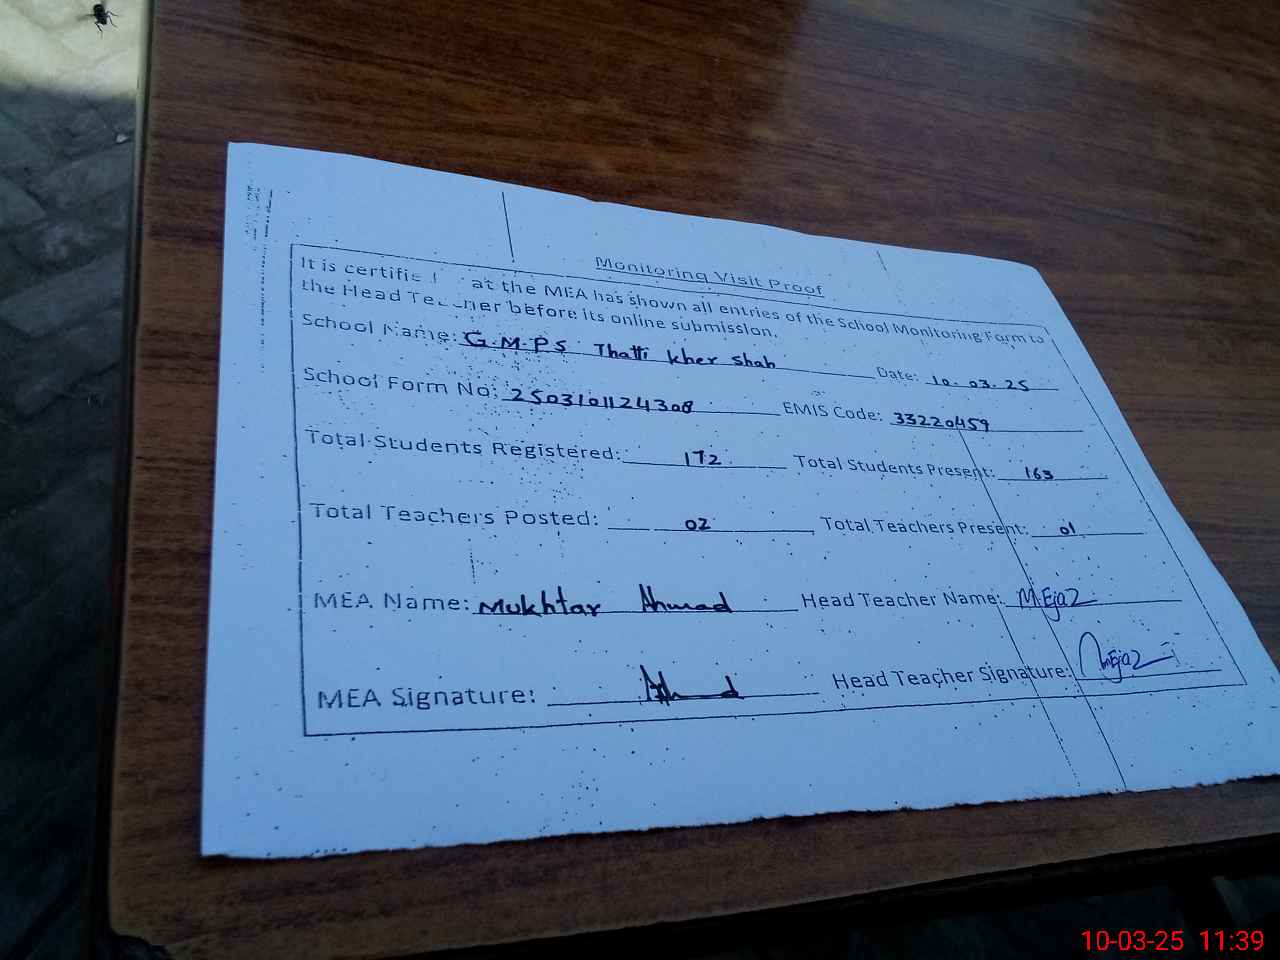 Monitoring Visit Proof
It is certifie at the MEA has shown all entries of the School Monitoring Form to
the Head Teacher before its online submission.
School Name: G.M.P.S Thatti Kher Shah Date: 10.03.25
School Form No: 2503101124308 EMIS Code: 33220459
Total Students Registered: 172 Total Students Present: 163
Total Teachers Posted: 02 Total Teachers Present: 01
MEA Name: Mukhtar Ahmad Head Teacher Name: M.Ejaz
MEA Signature: Ahmad Head Teacher Signature: M.Ejaz
10-03-25 11:39